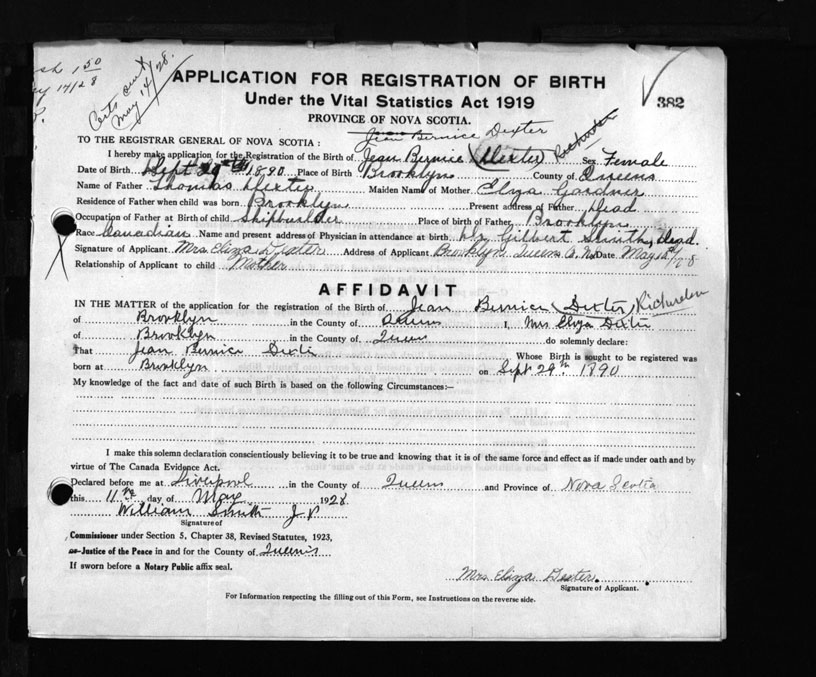 1 50
17/28
Certs out
May 14/28.
382
APPLICATION FOR REGISTRATION OF BIRTH
Under the Vital Statistics Act 1919
PROVINCE OF NOVA SCOTIA.
Jean Bernice Dexter
TO THE REGISTRAR GENERAL OF NOVA SCOTIA :
I hereby make application for the Registration of the Birth of Jean Bernice (Dexter) Sex Female
Date of Birth Sept 29th 1890 Place of Birth Brooklyn County of Queens
Name of Father Thomas Dexter Maiden Name of Mother Eliza Gardner
Residence of Father when child was born Brooklyn Present address of Father Dead
Occupation of Father at Birth of child Shipbuilder Place of birth of Father Brooklyn
Race Canadian Name and present address of Physician in attendance at birth Gilbert Smith, Dead.
Signature of Applicant Mrs. Eliza Dexter Address of Applicant Brooklyn Queens Co. N.S. Date May 10/28
Relationship of Applicant to child Mother
AFFIDAVIT
IN THE MATTER of the application for the registration of the Birth of Jean Bernice (Dexter)
of Brooklyn in the County of Queens I, Mrs Eliza Dexter
of Brooklyn in the County of Queens do solemnly declare:
That Jean Bernice Dexter Whose Birth is sought to be registered was
born at Brooklyn on Sept 29th 1890
My knowledge of the fact and date of such Birth is based on the following Circumstances:—
I make this solemn declaration conscientiously believing it to be true and knowing that it is of the same force and effect as if made under oath and by
virtue of The Canada Evidence Act.
Declared before me at Liverpool in the County of Queens and Province of Nova Scotia
this 11th day of May 1928
William Smith J P
Signature of
Commissioner under Section 5, Chapter 38, Revised Statutes, 1923,
or Justice of the Peace in and for the County of Queens
If sworn before a Notary Public affix seal.
Mrs. Eliza Dexter.
Signature of Applicant.
For Information respecting the filling out of this Form, see Instructions on the reverse side.